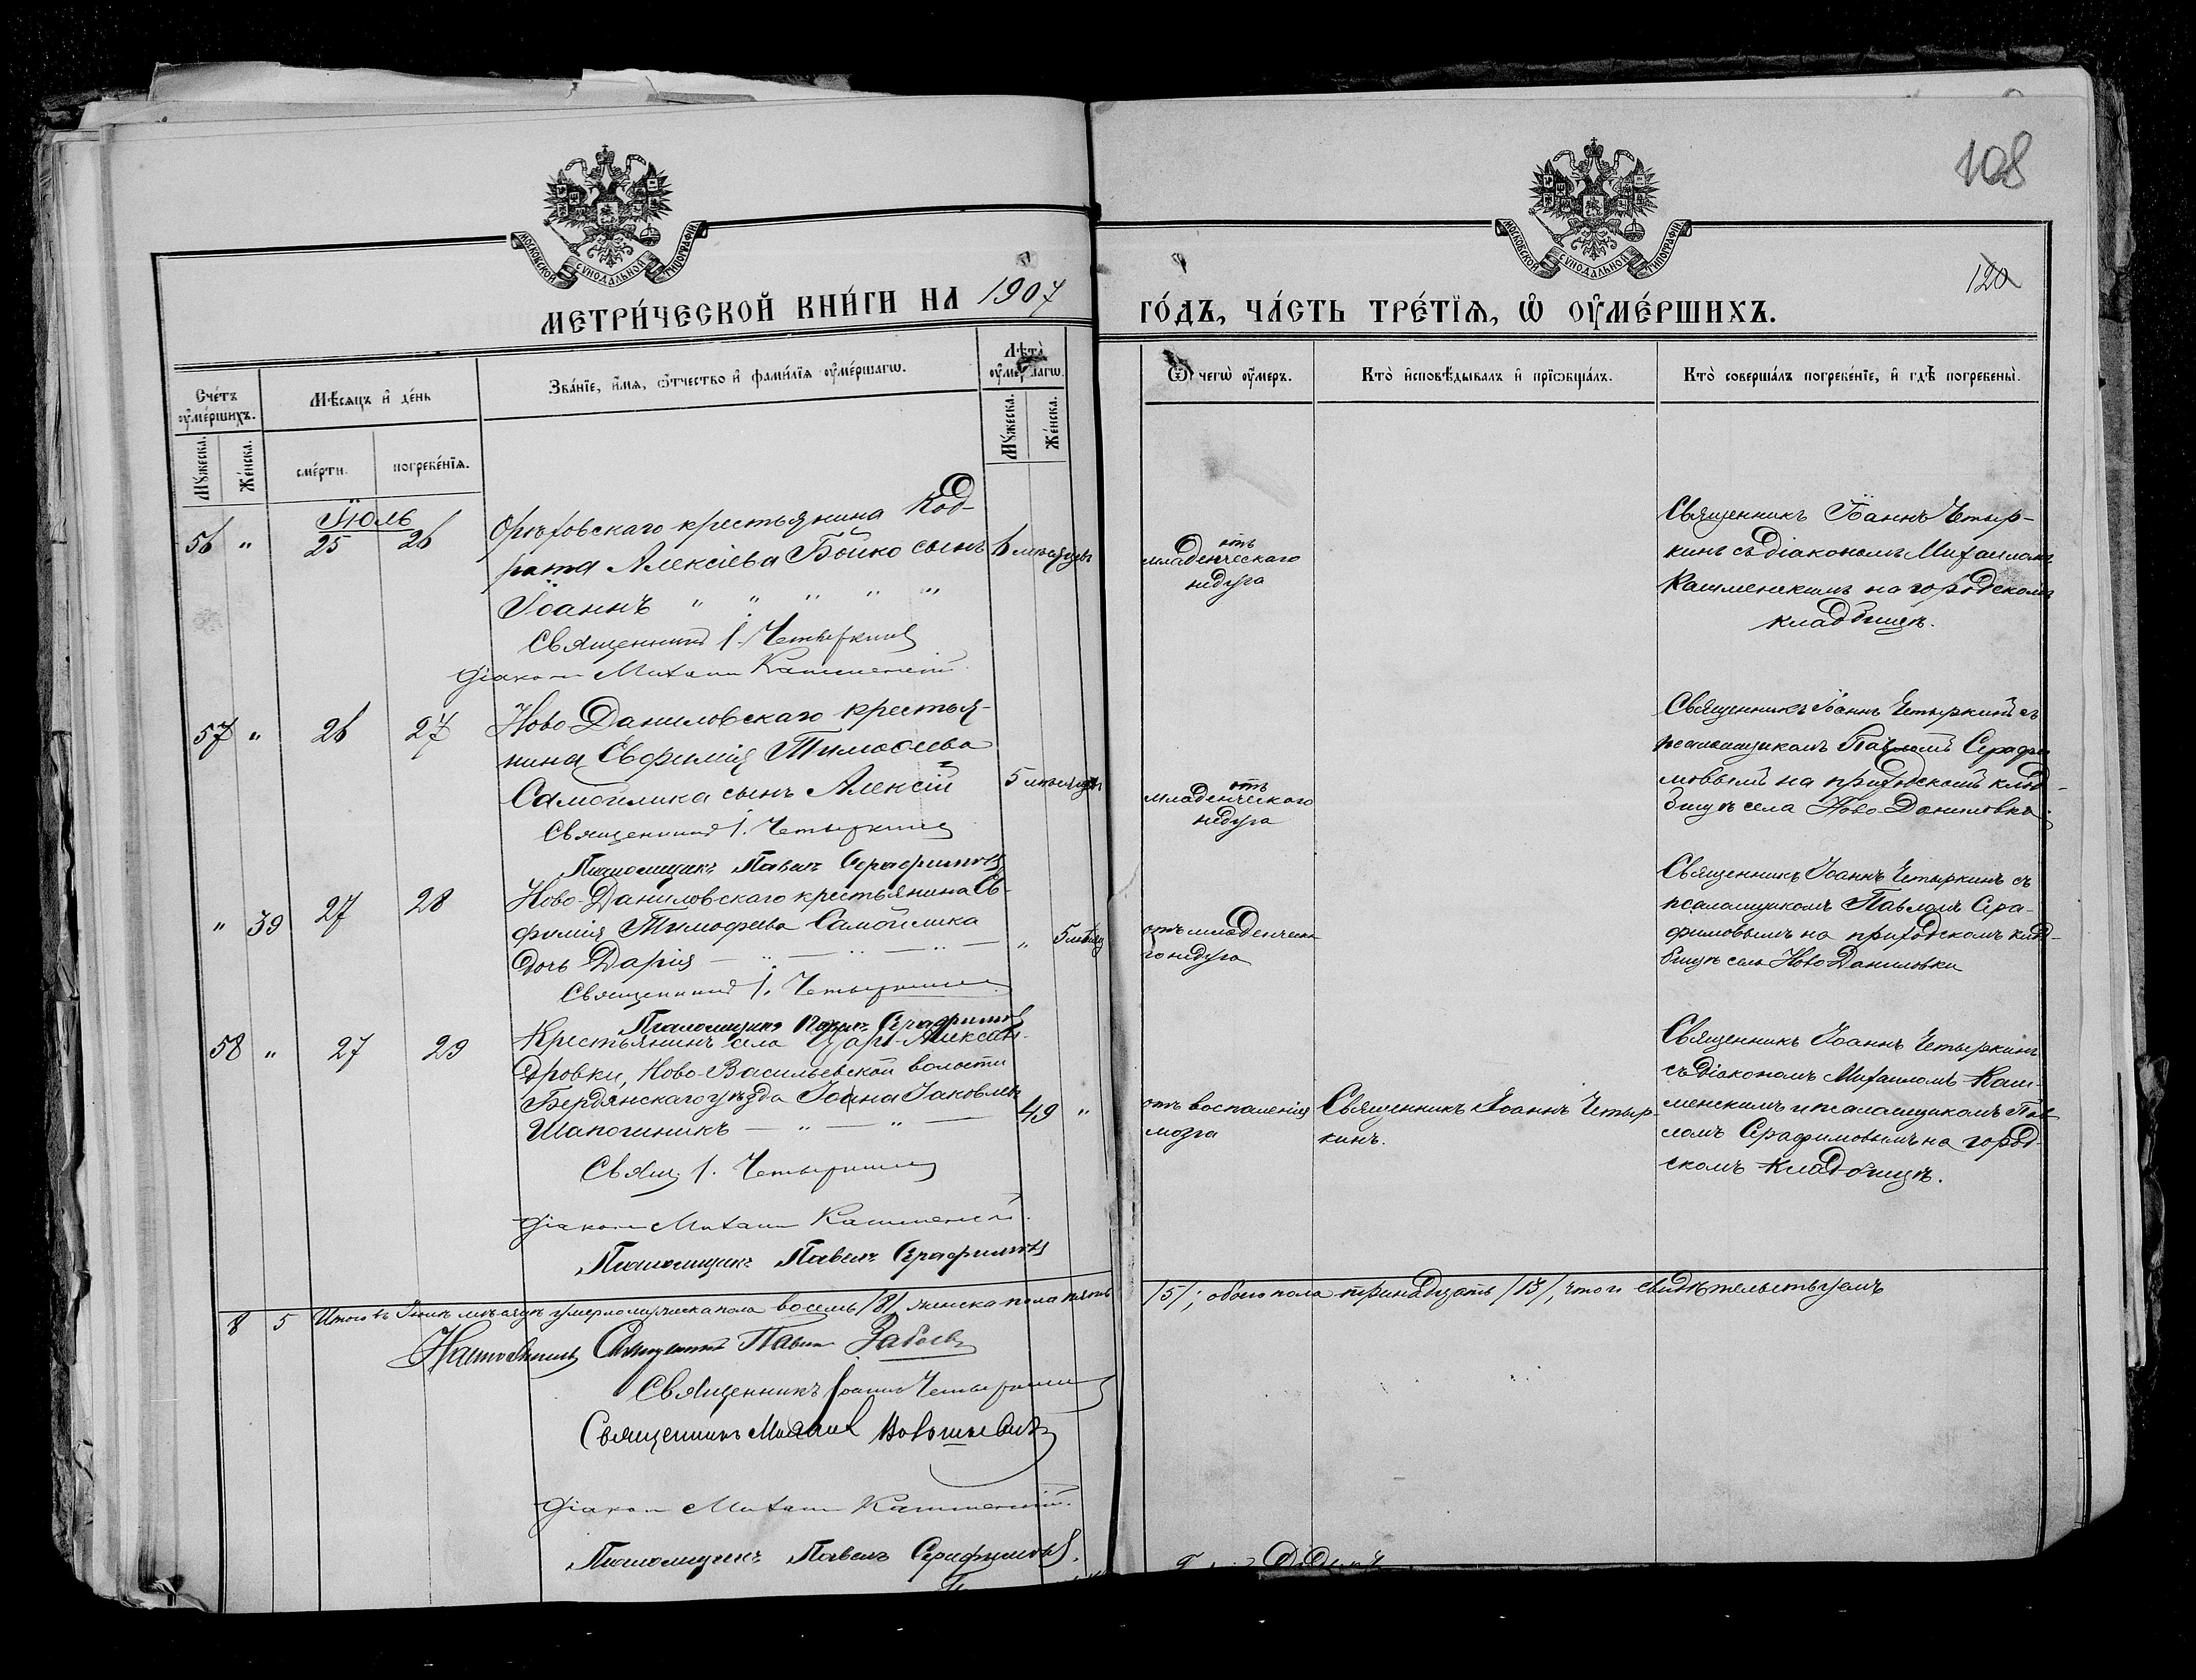 108
МОСКОВСКОЙ СѴНОДАЛЬНОЙ ТИПОГРАФІИ
МОСКОВСКОЙ СѴНОДАЛЬНОЙ ТИПОГРАФІИ
120
МЕТРИ́ЧЕСКОЙ КНИ́ГИ НА 1907
ГО́ДЪ, ЧА́СТЬ ТРЕ́ТІѦ, Ѡ҆ ОУ҆МЕ́РШИХЪ.
Сче́тъ оу҆ме́ршихъ.
Мꙋ́жеска.
Же́нска.
Мѣ́сяцъ и҆ де́нь
сме́рти.
погребе́нїѧ.
Зва́нїе, и҆́мѧ, ѻ҆́тчество и҆ фами́лїѧ оу҆ме́ршагѡ.
Лѣ́та оу҆ме́ршагѡ.
Мꙋ́жеска.
Же́нска.
Ѿ чегѡ̀ оу҆́меръ.
Кто̀ и҆сповѣ́дывалъ и҆ прїѡбща́лъ.
Кто̀ соверша́лъ погребе́нїе, и҆ гдѣ̀ погребены̀.
Іюль
56 " 25 26
Орѣховскаго крестьянина Код-
рата Алексіева Бойко сынъ
Іоаннъ " " " " "
6 мѣсяцевъ
Священникъ І. Четыркинъ
Діаконъ Михаилъ Кашменскій.
отъ
младенческаго
недуга
Священникъ Іоаннъ Четыр-
кинъ съ діакономъ Михаиломъ
Кашменскимъ на городскомъ
кладбищѣ.
57 " 26 27
Ново-Даниловскаго крестья-
нина Евфимія Тимоѳеева
Самойлика сынъ Алексій
5 мѣсяцевъ
Священникъ І. Четыркинъ
Псаломщикъ Павелъ Серафимовъ
отъ
младенческаго
недуга
Священникъ Іоаннъ Четыркинъ съ
псаломщикомъ Павломъ Серафи
мовымъ на приходскомъ клад-
бищѣ села Ново-Даниловки.
" 39 27 28
Ново-Даниловскаго крестьянина Ев-
фимія Тимофеева Самойлика
дочь Дарія — " — " — " —
"
Священникъ І. Четыркинъ
Псаломщикъ Павелъ Серафимовъ
отъ младенческа
го недуга
Священникъ Іоаннъ Четыркинъ съ
псаломщикомъ Павломъ Сера-
фимовымъ на приходскомъ клад-
бищѣ села Ново-Даниловки
58 " 27 29
Крестьянинъ села Царе-Алексан-
дровки, Ново-Васильевской волости
Бердянскаго уѣзда Іоанна Іаковлевъ
Шапошникъ — " — " —
49 "
Свящ. І. Четыркинъ
Діаконъ Михаилъ Кашменскій.
Псаломщикъ Павелъ Серафимовъ
отъ воспаленія
мозга
Священникъ Іоаннъ Четыр-
кинъ.
Священникъ Іоаннъ Четыркинъ
съ діакономъ Михаиломъ Каш-
менскимъ и псаломщикомъ Пав
ломъ Серафимовымъ на город-
скомъ кладбищѣ.
8 5 Итого въ Іюлѣ мѣсяцѣ умерло мужеска пола восемь /8/, женска пола пять
/5/; обоего пола тринадцать /13/, что и свидѣтельствуемъ
Настоятель Священникъ Павелъ
Священникъ Іоаннъ Четыркинъ
Священникъ
Діаконъ Михаилъ Кашменскій.
Псаломщикъ Павелъ Серафимовъ.